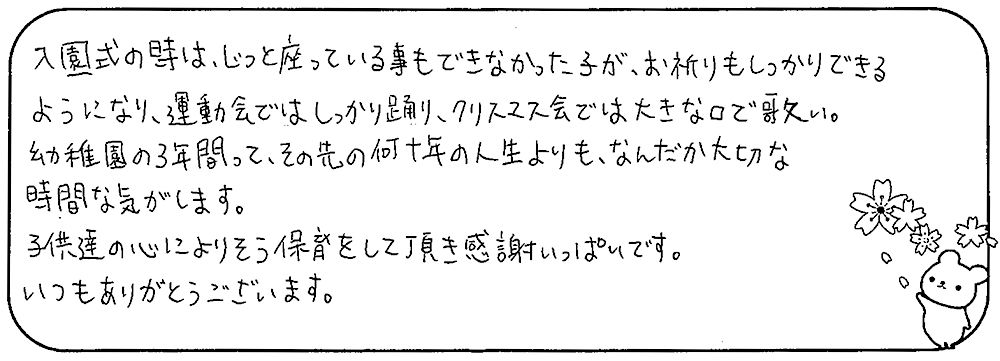 入園式の時は、じっと座っている事もできなかった子が、お祈りもしっかりできる
ようになり、運動会ではしっかり踊り、クリスマス会では大きな口で歌い。
幼稚園の3年間って、その先の何十年の人生よりも、なんだか大切な
時間な気がします。
子供達の心によりそう保育をして頂き感謝いっぱいです。
いつもありがとうございます。